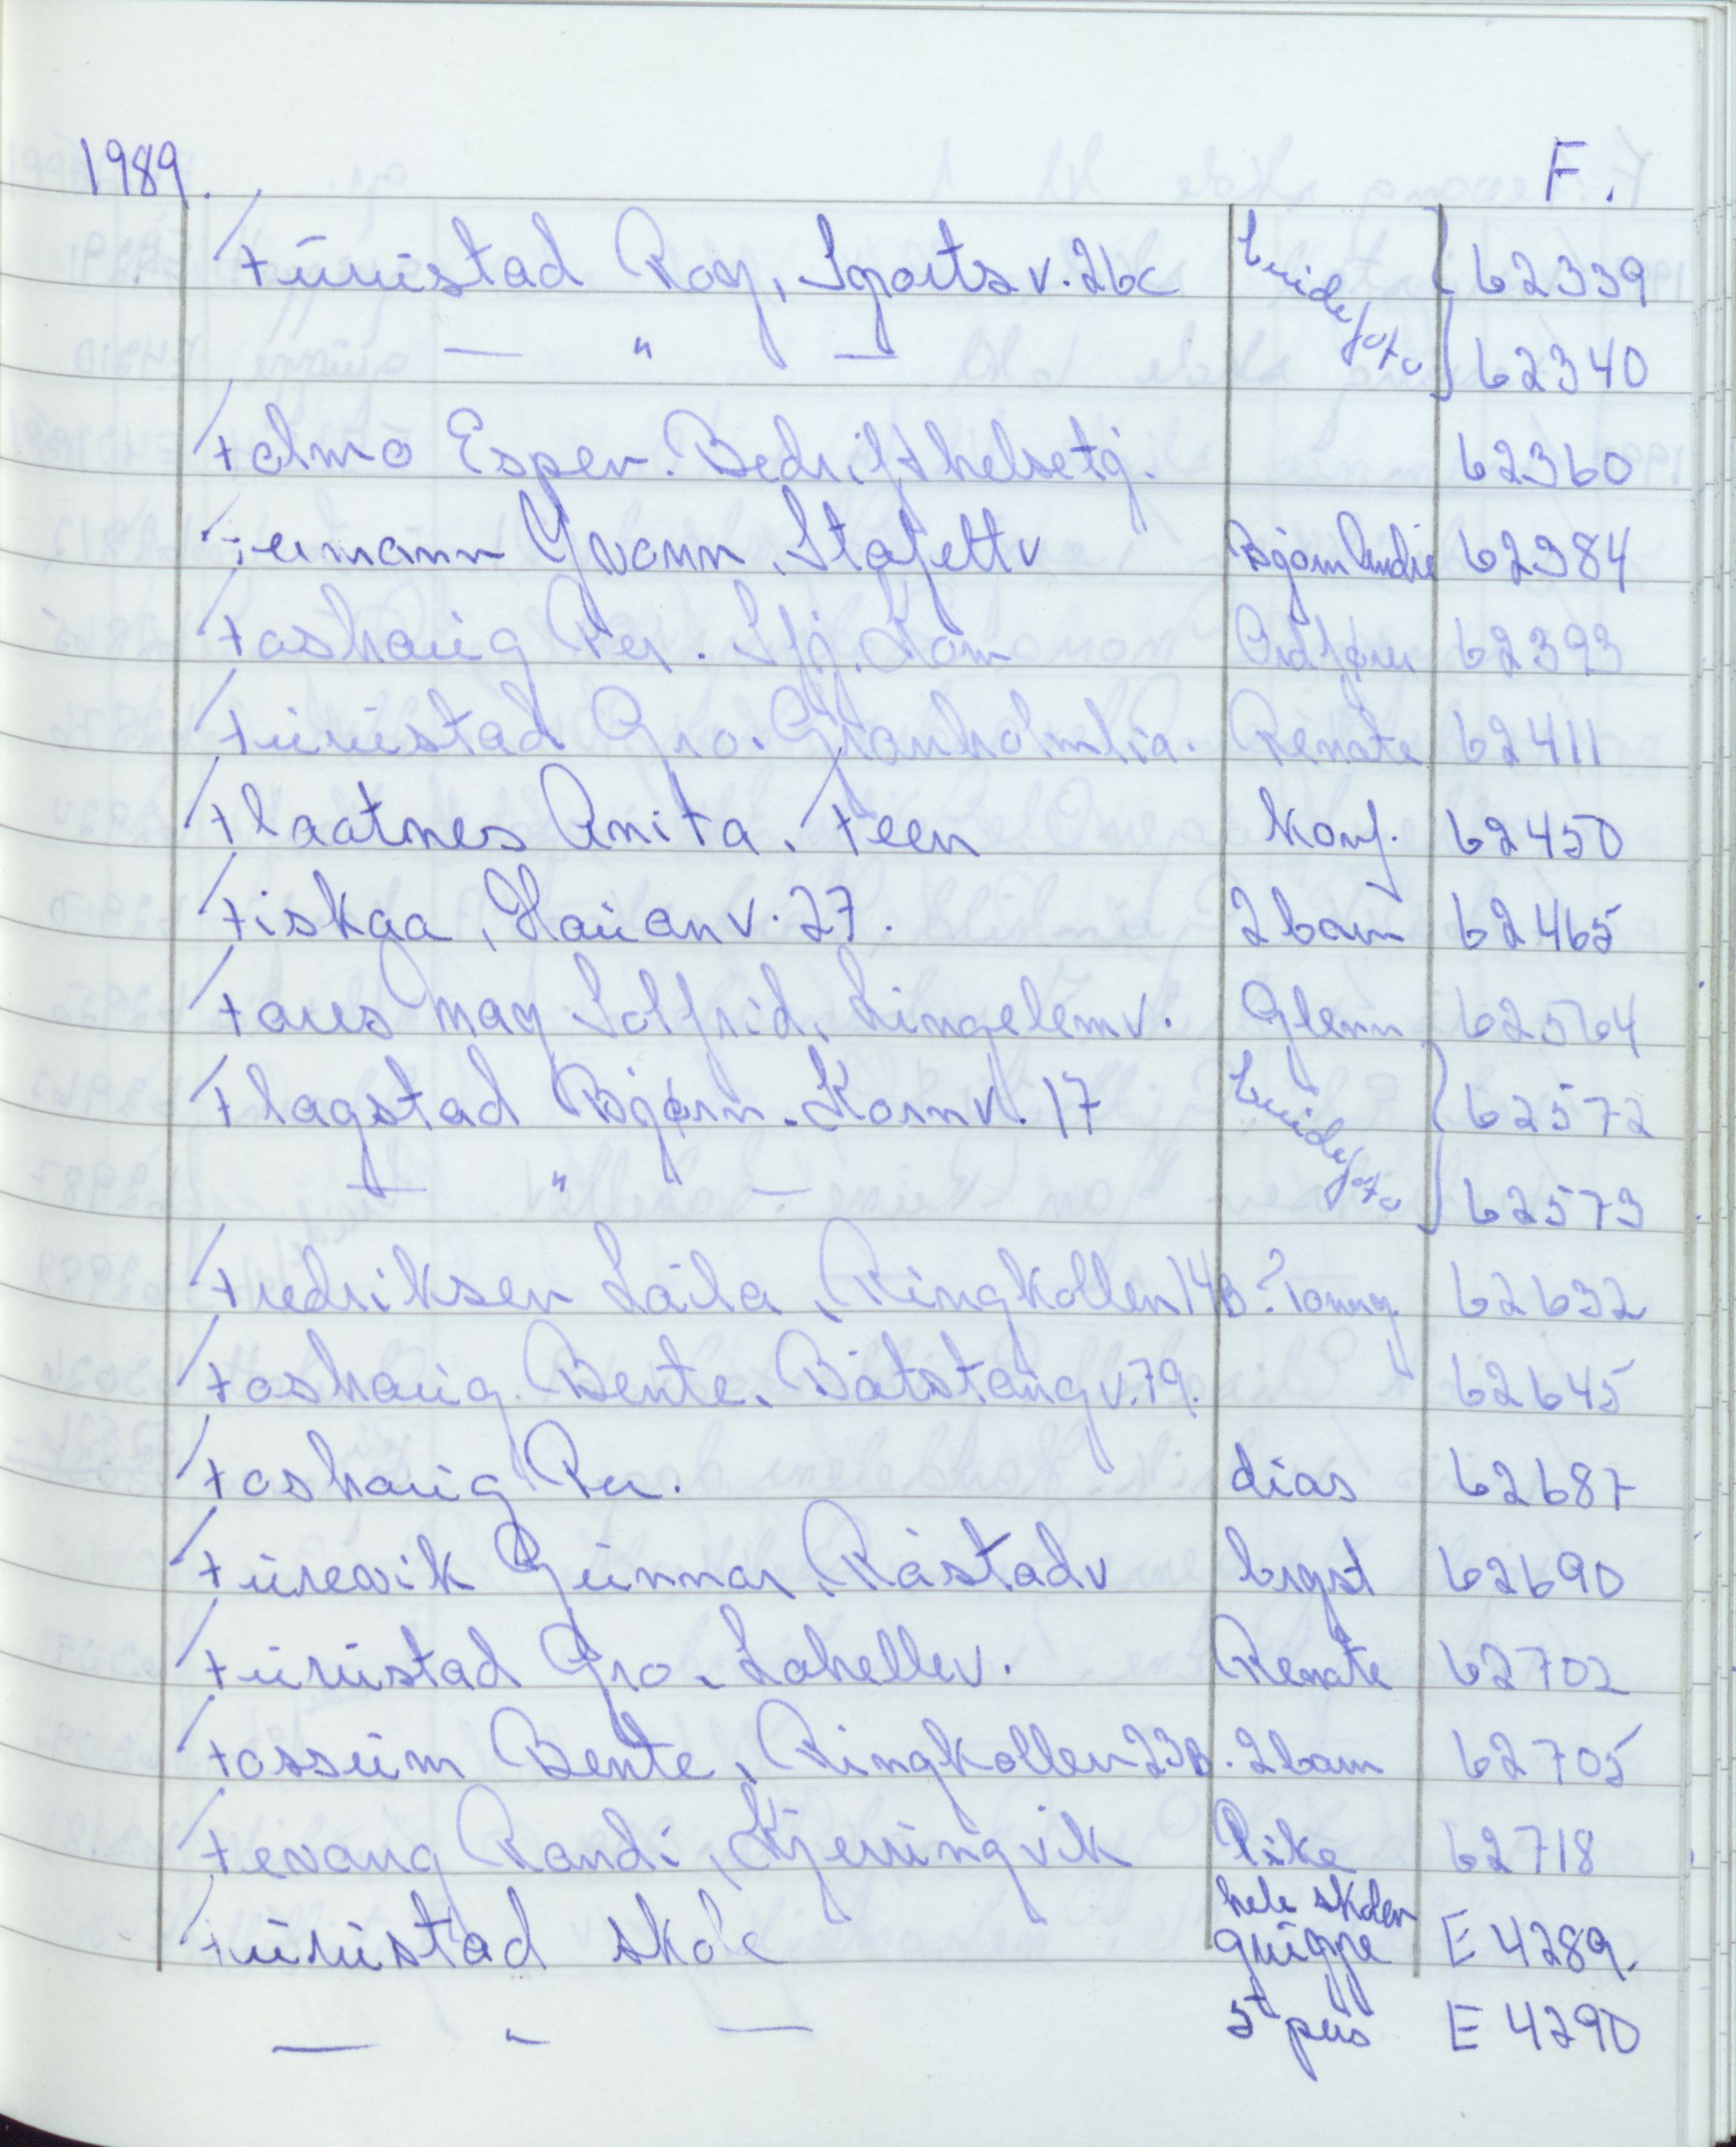 1989. F.
Furustad Roy, Sportsv. 26c Luidefoto 62339
— " — 62340
Folmo Espen. Bedrifthelsetj. 62360
Fermann Yvonn, Stafettv Bjørn André 62384
Foshaug Per. Sfj. Kom Ordfører 62393
Furustad Gro. Granholmlia. Renate 62411
Flaatnes Anita. Feen Konf. 62450
Fiskaa, Haianv. 27. 2 barn 62465
Fares May Solfrid, Lingelemv. Glenn 62564
Flagstad Bjørn. Kornv. 17 62572
— " — 62573
Fredriksen Laila, Ringkollen 14B ? Tonny 62632
Foshaug Bente. Båtstangv. 79. 62645
Foshaug Per. dias 62687
Furevik Gunnar, Råstadv brpst 62690
Furustad Gro. Lahellev. Renate 62702
Fossum Bente, Ringkollen 23B. 2 barn 62705
Fevang Randi, Kjerringvik Pike 62718
Furustad skole hele skolen gruppe E 4289.
— " — E 4290